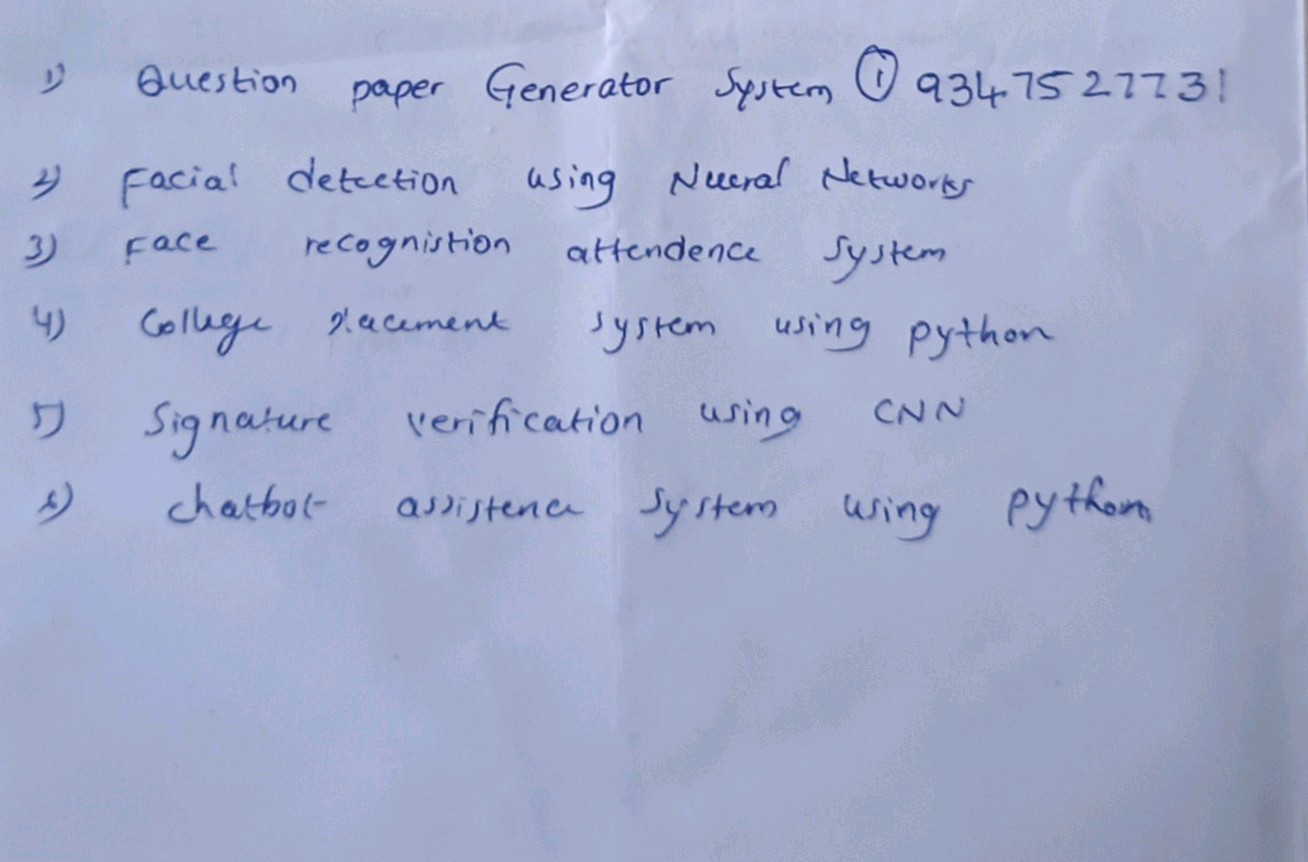 1) Question paper Generator System ① 9347527731
2) Facial detection using Nueral Networks
3) Face recognistion attendence System
4) College placement system using python
5) Signature verification using CNN
6) chatbot assistence System using python